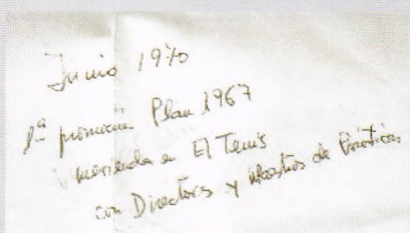 Junio 1970
1ª promoción Plan 1967
merienda en El Tenis
con Directora y Maestras de Prácticas